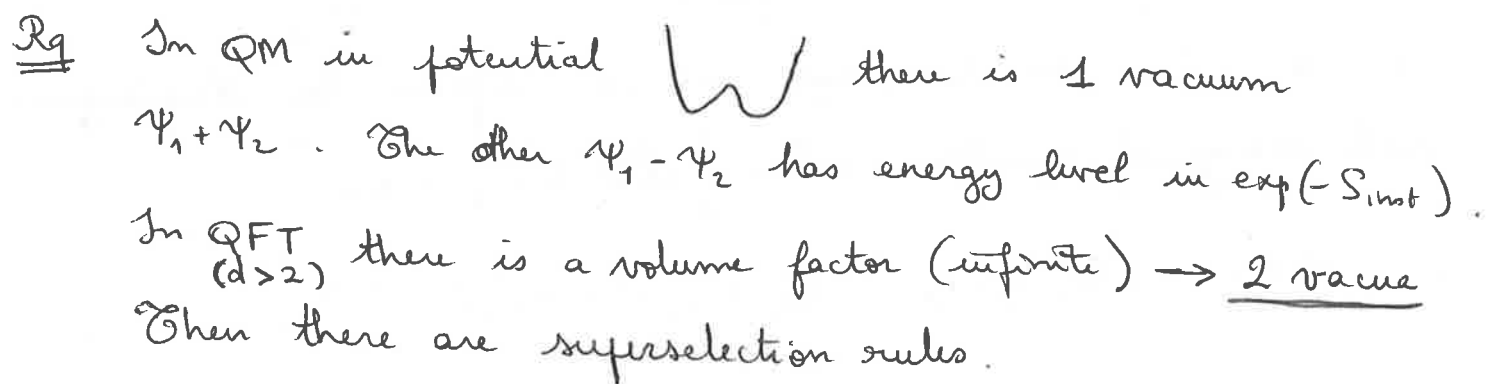 Rq In QM in potential there is 1 vacuum
Ψ₁+Ψ₂. The other Ψ₁-Ψ₂ has energy level in exp(-S_inst).
In QFT there is a volume factor (infinite) → 2 vacua
(d>2)
Then there are superselection rules.